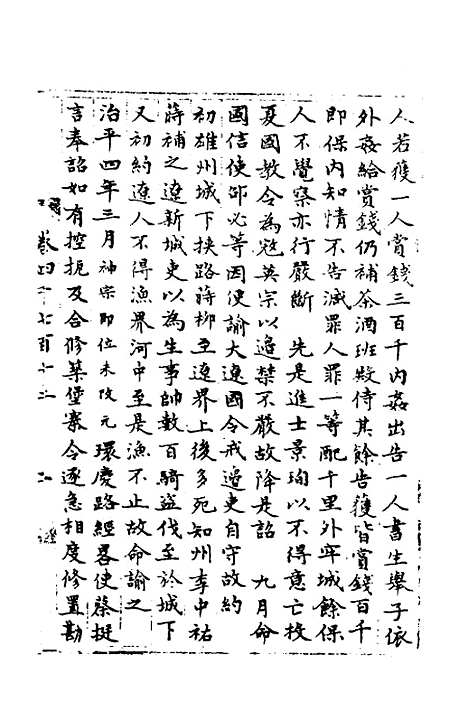 人若獲一人賞錢三百千内姦出告一人書生舉子依
外姦給賞錢仍補茶酒班殿侍其餘告獲皆賞錢百千
即保内知情不告減罪人罪一等配千里外牢城餘保
人不覺察亦行嚴斷　先是進士景珣以不得意亡投
夏國教令為寇英宗以邉禁不嚴故降是詔　九月命
國信使邵必等因使諭大遼國令戒邉吏自守故約
初雄州城下挾路蒔柳至遼界上後多死知州李中祐
蒔補之遼新城吏以為生事帥數百騎盗伐至於城下
又初約遼人不得漁界河中至是漁不止故命諭之
治平四年三月神宗即位未改元環慶路經畧使蔡挺
言奉詔如有控扼及合修築堡寨令逐急相度修置勘
卷四千七百十二